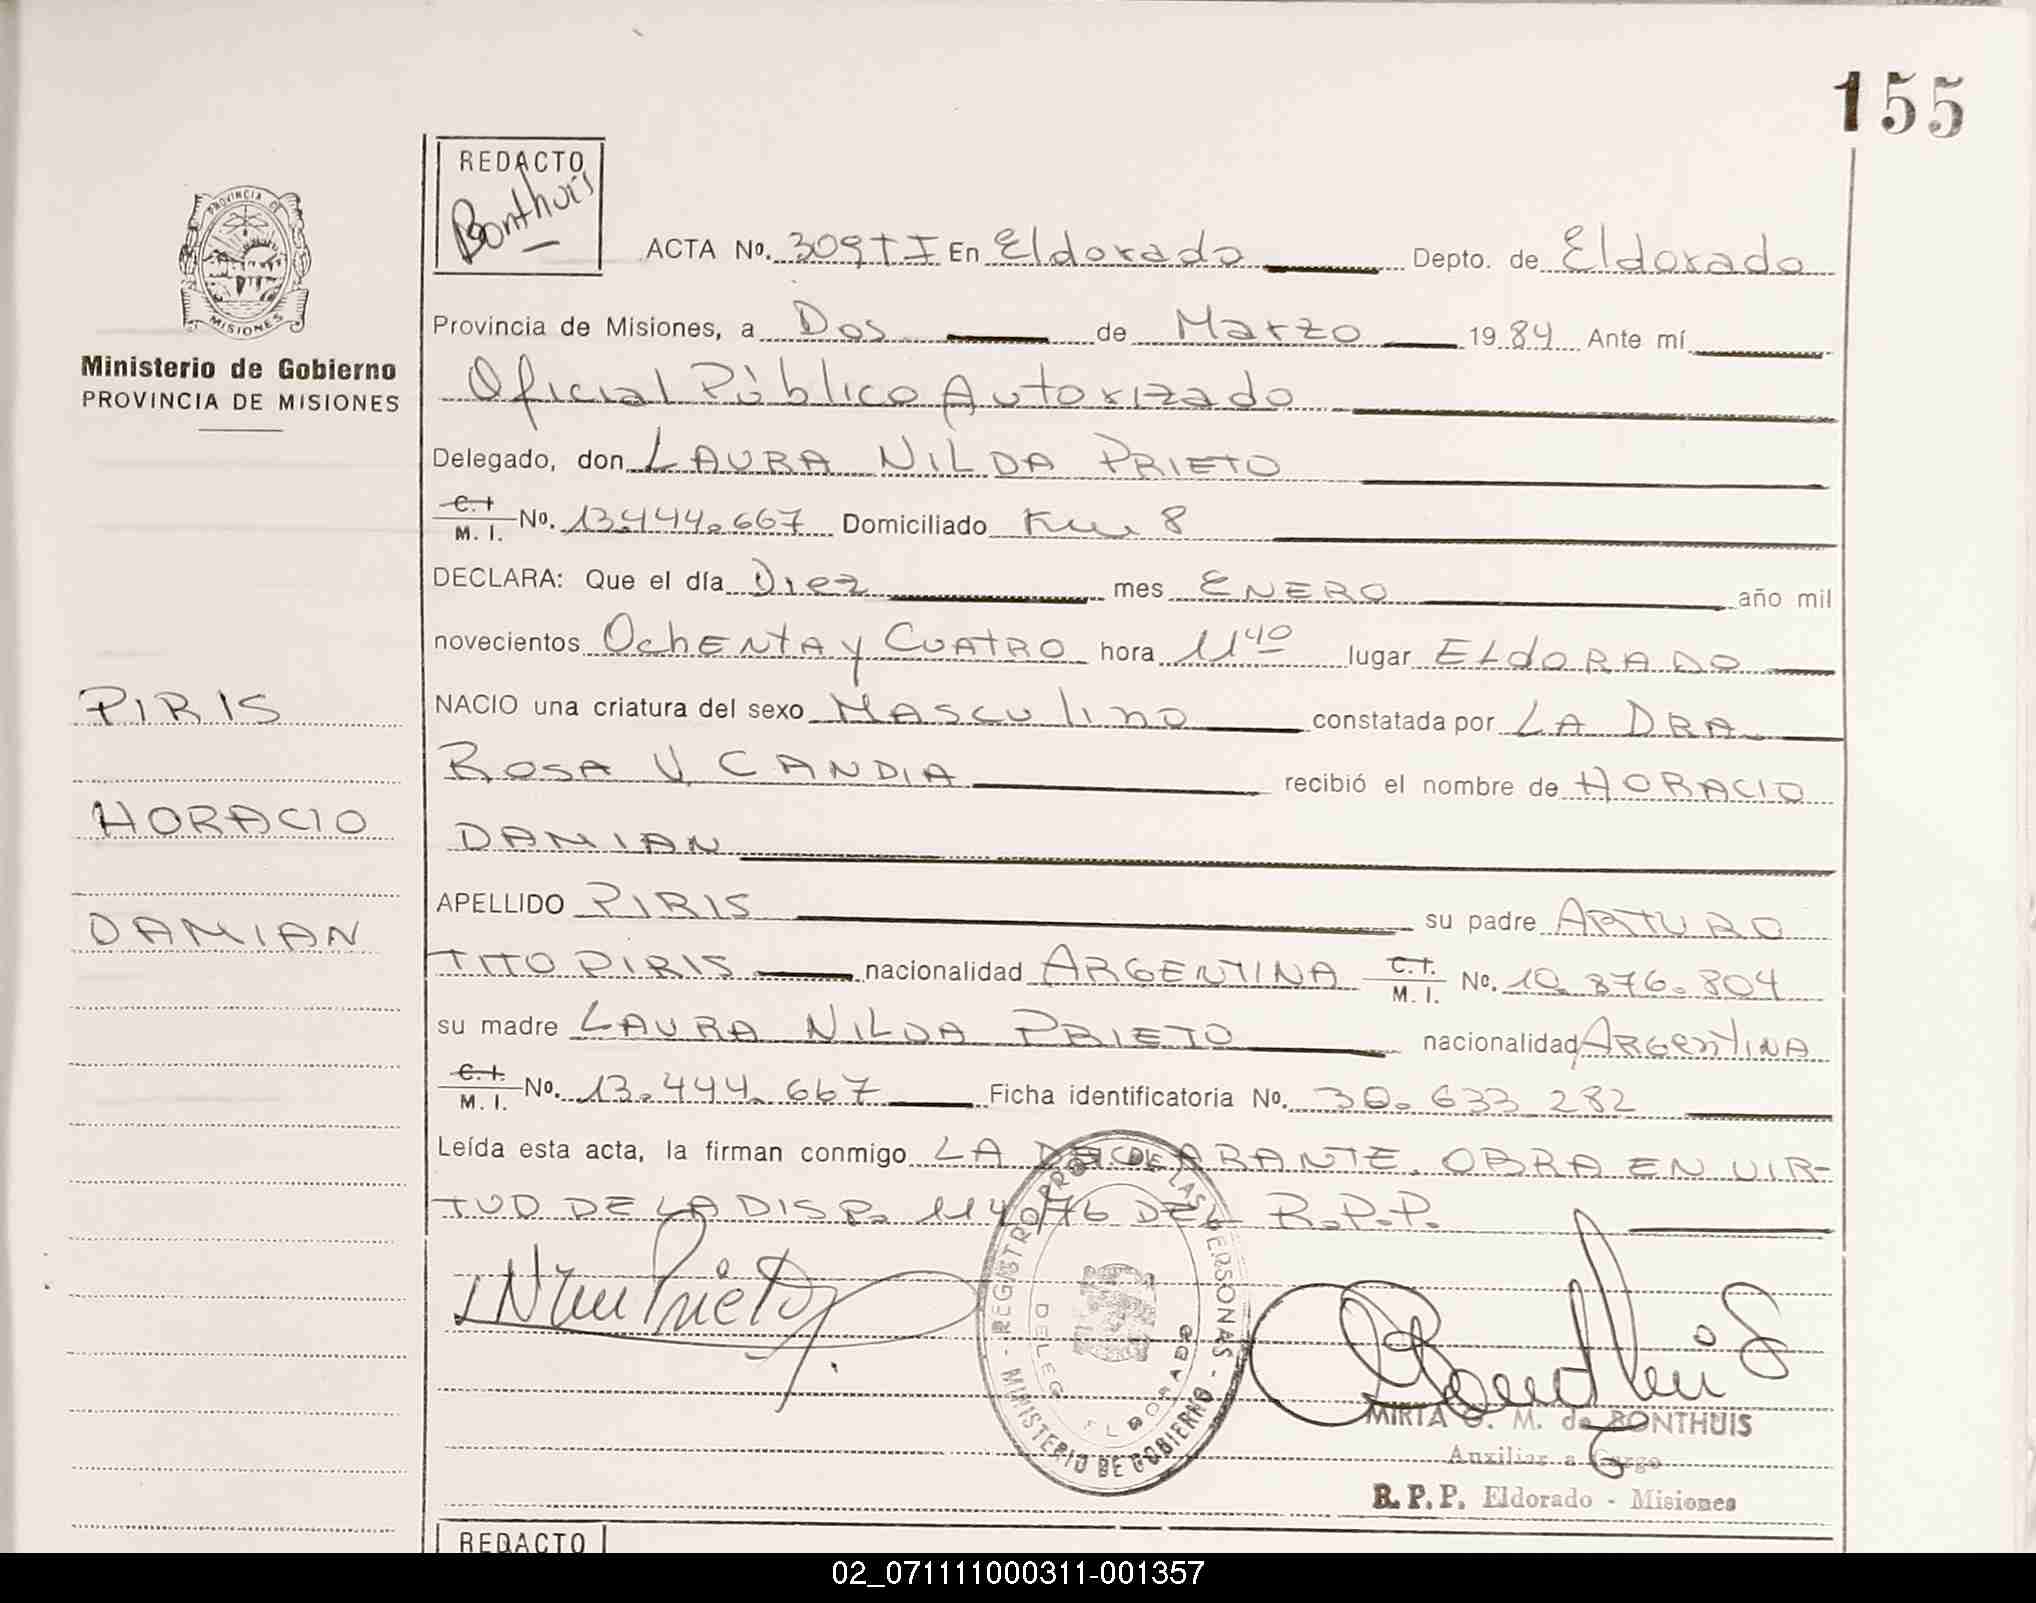 155
REDACTO
Bonthuis
PROVINCIA DE
MISIONES
Ministerio de Gobierno
PROVINCIA DE MISIONES
ACTA No. 309 T I En Eldorado Depto. de Eldorado
Provincia de Misiones, a Dos de Marzo 1984 Ante mí
Oficial Público Autorizado
Delegado, don LAURA NILDA PRIETO
C.I. M. I. No. 13.444.667 Domiciliado Km 8
DECLARA: Que el día Diez mes ENERO año mil
novecientos OchENTA y CUATRO hora 11 40 lugar ELdORADO
NACIO una criatura del sexo MAScUlino constatada por LA DRA.
ROSA V. CANDIA recibió el nombre de HORACIO
DAMIAN
APELLIDO PIRIS su padre ARTURO
TITO PIRIS nacionalidad ARGENTINA C.I. M. I. No. 10.376.804
su madre LAURA NILDA PRIETO nacionalidad ARGENTINA
C.I. M. I. No. 13.444.667 Ficha identificatoria No. 30.633.282
Leída esta acta, la firman conmigo LA DECLARANTE. OBRA EN VIR-
TUD DE LA DISP. 114/76 DEL R.P.P.
PIRIS
HORACIO
DAMIAN
Prieto
REGISTRO PROV. DE LAS PERSONAS - MINISTERIO DE GOBIERNO -
DELEG. ELDORADO
Bonthuis
MIRTA G. M. de BONTHUIS
Auxiliar a Cargo
R. P. P. Eldorado - Misiones
REDACTO
02_071111000311-001357